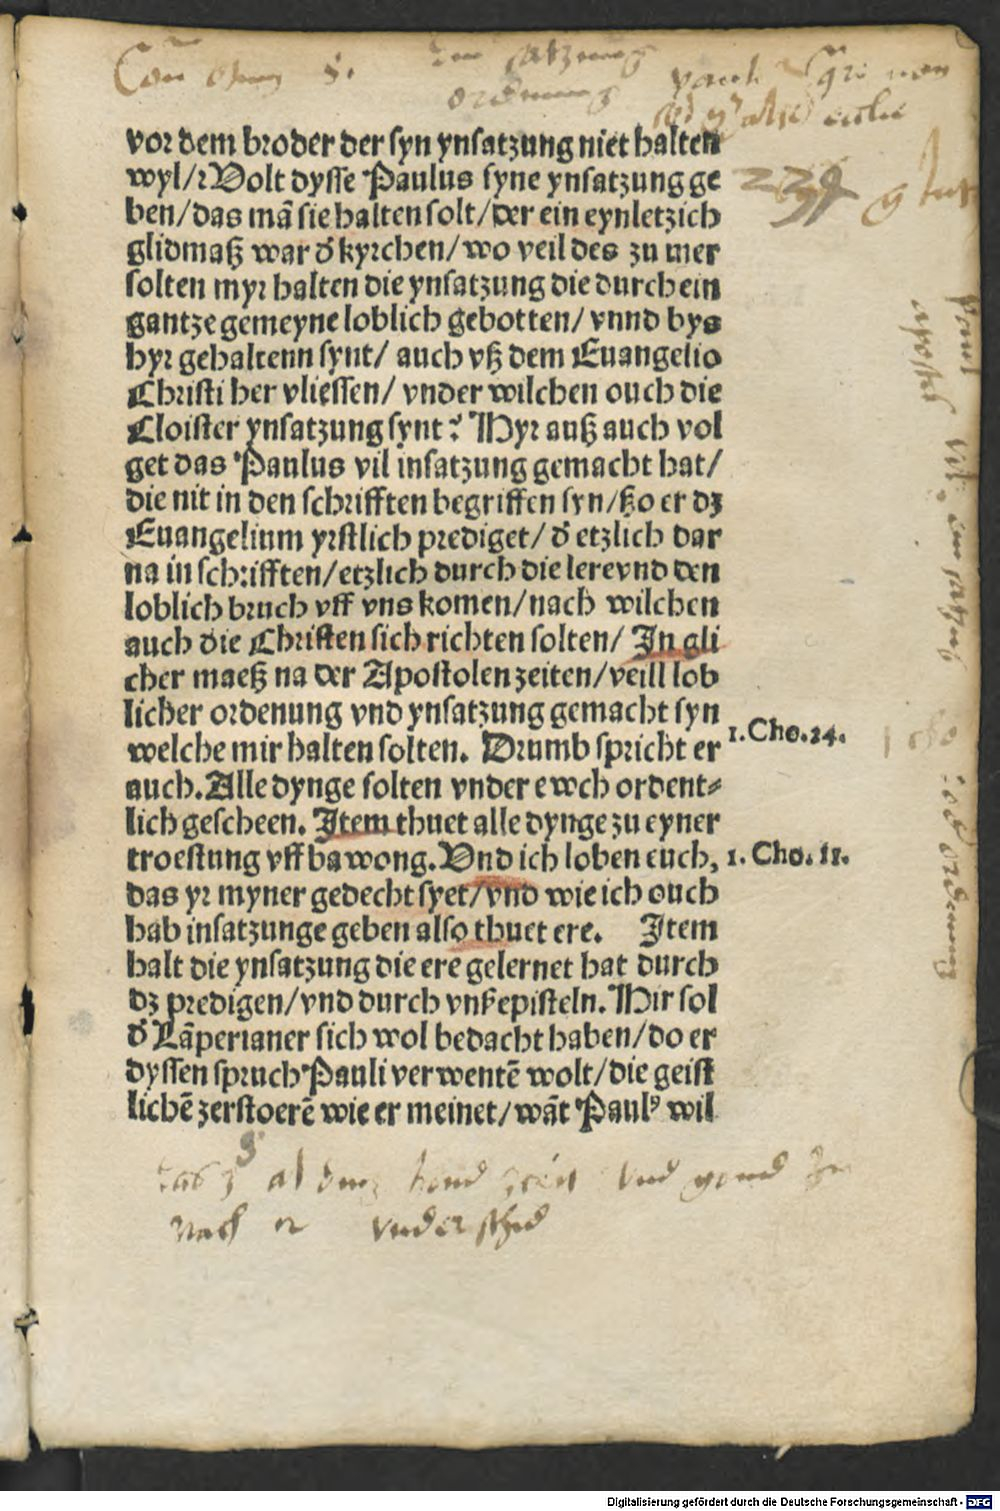 ordnung
vor dem broder der syn ynsatzung niet halten
wyl/ꝛ Volt dysse Paulus syne ynsatzung ge
ben/das mã sie halten solt/der ein eynletzich
glidmaß war d̕ kyrchen/wo veil des zu mer
solten myꝛ halten die ynsatzung die durch ein
gantze gemeyne loblich gebotten/ vnnd bys
hyꝛ gehaltenn synt/ auch vß dem Euangelio
Christi her vliessen/ vnder wilchen ouch die
Cloister ynsatzung synt? Hyꝛ auß auch vol
get das Paulus vil insatzung gemacht hat/
die nit in den schrifften begriffen syn/ßo er dz
Euangelium yrstlich prediget/ d̕ etzlich dar
na in schrifften/etzlich durch die lere vnd den
loblich bruch vff vns komen/nach wilchen
auch die Christen sich richten solten/ In gli
cher maeß na der Apostolen zeiten/veill lob
licher ordenung vnd ynsatzung gemacht syn
welche mir halten solten. Drumb spricht er
1. Cho. 14.
auch. Alle dynge solten vnder ewch ordent⸗
lich gescheen. Item thuet alle dynge zu eyner
troestung vffbawong. Vnd ich loben euch,
1. Cho. 11.
das yꝛ myner gedecht syet/vnd wie ich ouch
hab insatzunge geben also thuet ere. Item
halt die ynsatzung die ere gelernet hat durch
dz predigen/vnd durch vnß episteln. Hir sol
d̕ Lãperianer sich wol bedacht haben/do er
dyssen spruch Pauli verwentẽ wolt/die geist
lichẽ zerstoerẽ wie er meinet/wãt Paulꝰ wil
vnd
vnderschid
Digitalisierung gefördert durch die Deutsche Forschungsgemeinschaft - DFG